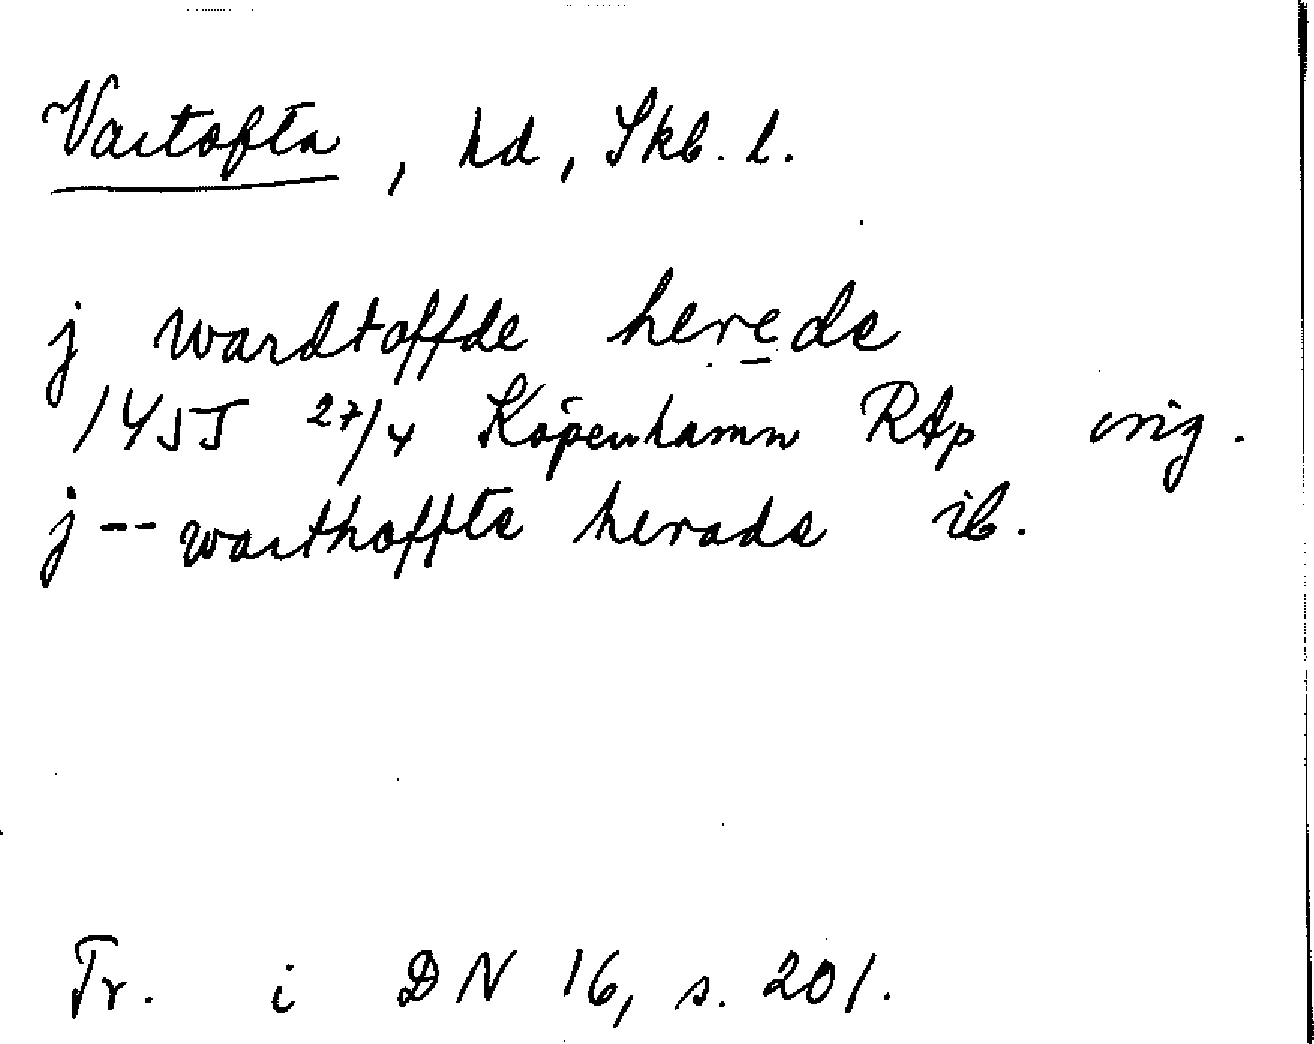 Vartofta, hd, Skb. l.
j wardtoffde herede
1455 27/4 Köpenhamn RAp orig.
j -- warthoffte herade ib.
Tr. i DN 16, s. 201.